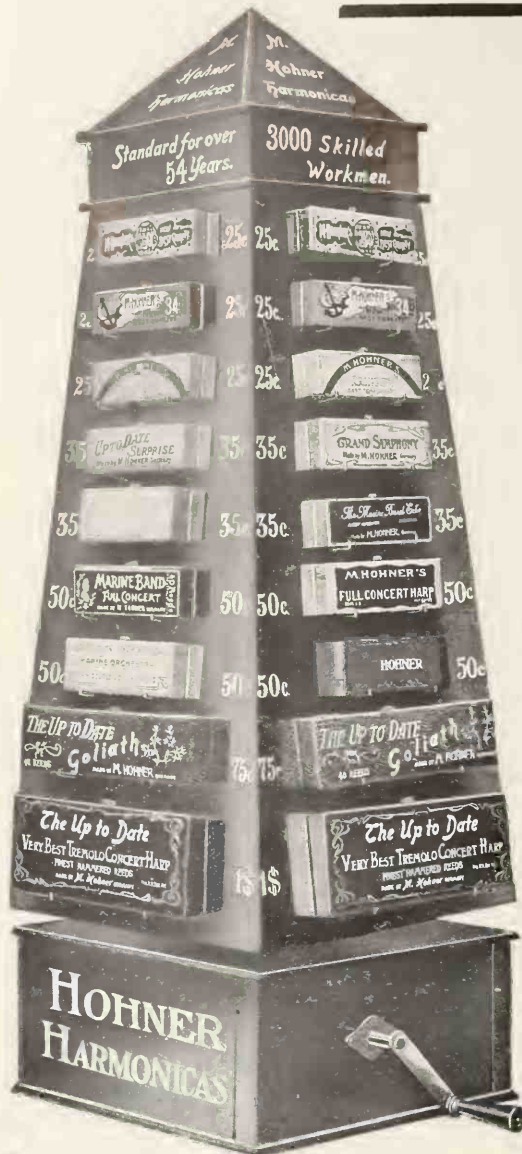 M
Hohner
Harmonicas
M.
Hohner
Harmonicas
Standard for over
54 Years.
3000 Skilled
Workmen.
25c
25c.
25c
M. HOHNER
34
25c.
34
25c
25
25
25c.
M. HOHNER'S
35
UP TO DATE
SURPRISE
Made by M. HOHNER Germany
35c
35c
GRAND SYMPHONY
Made by M. HOHNER Germany
35c
35
35c
35c.
The Marine Band Echo
Made by M. HOHNER, Germany
35c
50c
MARINE BAND
FULL CONCERT
MADE BY M. HOHNER GERMANY
50
50c.
M. HOHNER'S
FULL CONCERT HARP
50c
50c
50
50c.
HOHNER
50c
THE UP TO DATE
Goliath
40 REEDS
MADE BY M. HOHNER
75c
75c
THE UP TO DATE
Goliath
40 REEDS
MADE BY M. HOHNER
The Up to Date
VERY BEST TREMOLO CONCERT HARP
FINEST HAMMERED REEDS
MADE BY M. Hohner GERMANY
1$
1$
The Up to Date
VERY BEST TREMOLO CONCERT HARP
FINEST HAMMERED REEDS
MADE BY M. Hohner GERMANY
HOHNER
HARMONICAS